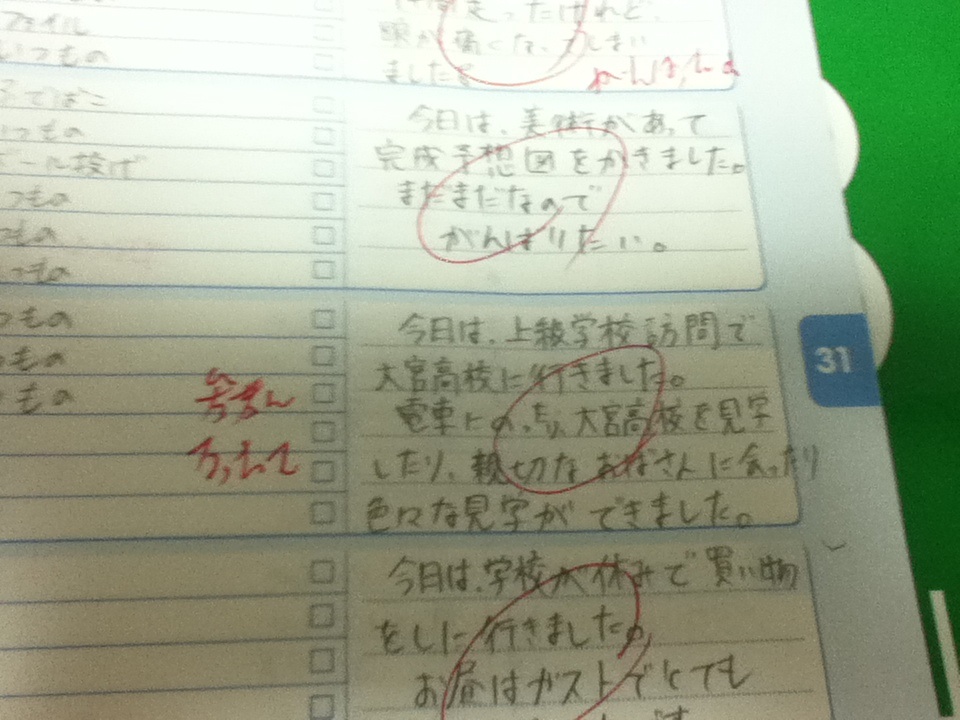 ファイル
いつもの
走ったけれど、
頭が痛くなってしまい
ました。
いつもの
ボール投げ
つもの
つもの
つもの
今日は、美術があって
完成予想図をかきました。
まだまだなので
がんばりたい。
つもの
つもの
もの
今日は、上級学校訪問で
大宮高校に行きました。
電車にのったり、大宮高校を見学
したり、親切なおばさんに会ったり
色々な見学ができました。
31
今日は、学校が休みで買い物
をしに行きました。
お昼はガストでとても